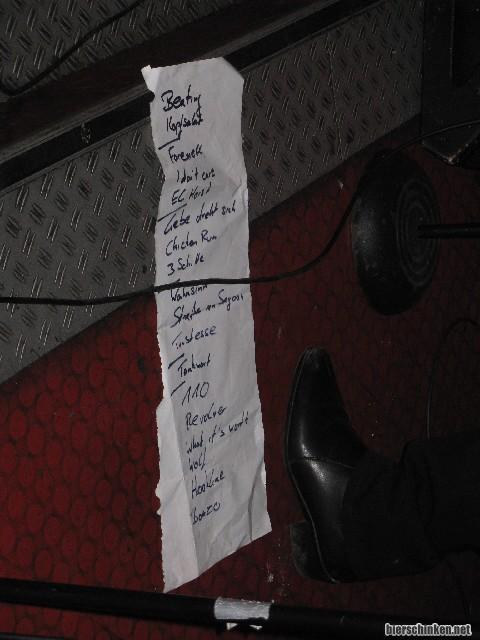 Beating
Kopfsalat
Farewell
I don't care
EC Heroin
Liebe dreht sich
Chicken Run
3 Schiffe
Wahnsinn
Strasse von
Tristesse
Tankwart
110
Revolver
What it's worth
Wolf
Hookline
Bonzo
bierschinken.net